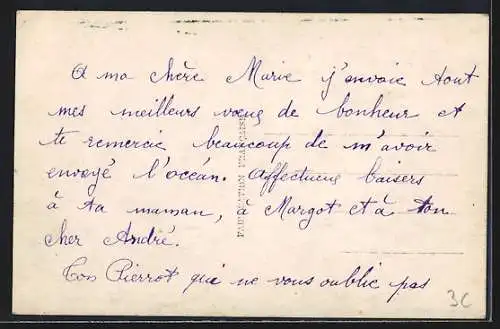 A ma chère Marie j'envoie tout
mes meilleurs voeux de bonheur et
te remercie beaucoup de m'avoir
envoyé l'océan. Affectueux baisers
à ta maman, à Margot et à ton
cher André.
Ton Pierrot qui ne vous oublie pas
FABRICATION FRANÇAISE
3C